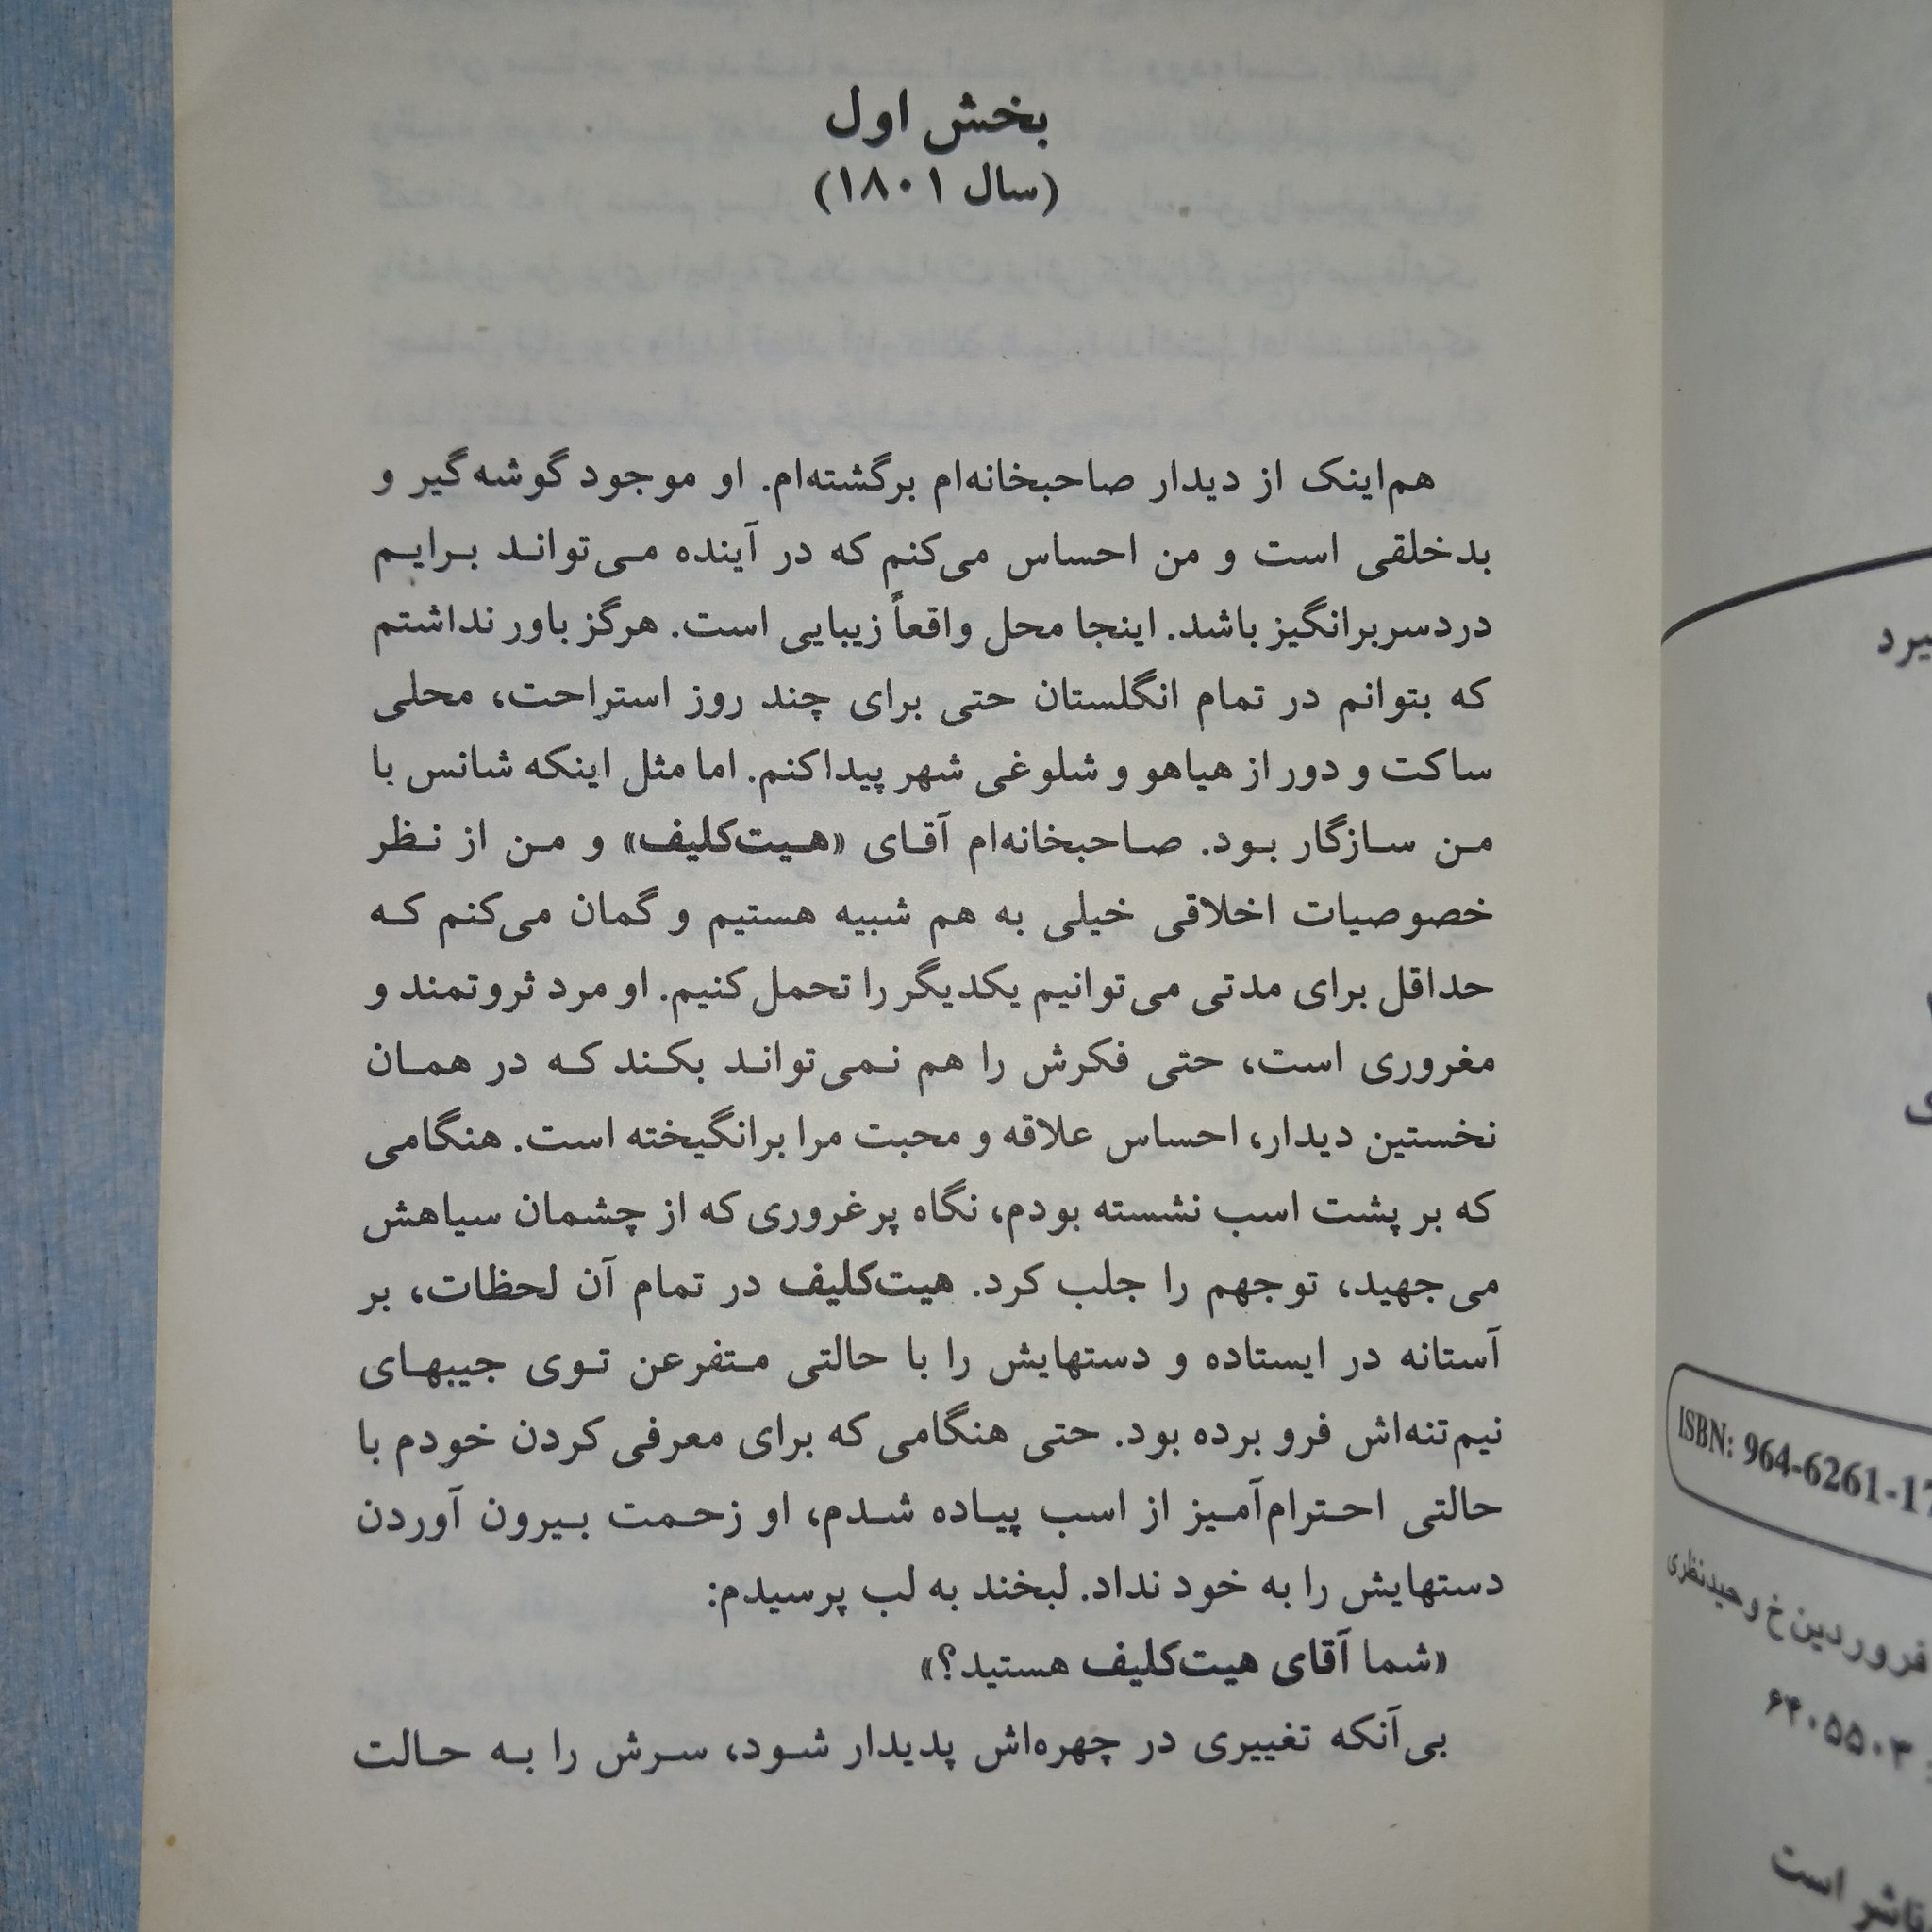 بخش اول
(سال ۱۸۰۱)
هم‌اینک از دیدار صاحبخانه‌ام برگشته‌ام. او موجود گوشه‌گیر و
بدخلقی است و من احساس می‌کنم که در آینده می‌تواند برایم
دردسربرانگیز باشد. اینجا محل واقعاً زیبایی است. هرگز باور نداشتم
که بتوانم در تمام انگلستان حتی برای چند روز استراحت، محلی
ساکت و دور از هیاهو و شلوغی شهر پیدا کنم. اما مثل اینکه شانس با
من سازگار بود. صاحبخانه‌ام آقای «هیت‌کلیف» و من از نظر
خصوصیات اخلاقی خیلی به هم شبیه هستیم و گمان می‌کنم که
حداقل برای مدتی می‌توانیم یکدیگر را تحمل کنیم. او مرد ثروتمند و
مغروری است، حتی فکرش را هم نمی‌تواند بکند که در همان
نخستین دیدار، احساس علاقه و محبت مرا برانگیخته است. هنگامی
که بر پشت اسب نشسته بودم، نگاه پرغروری که از چشمان سیاهش
می‌جهید، توجهم را جلب کرد. هیت‌کلیف در تمام آن لحظات، بر
آستانه در ایستاده و دستهایش را با حالتی متفرعن توی جیبهای
نیم‌تنه‌اش فرو برده بود. حتی هنگامی که برای معرفی کردن خودم با
حالتی احترام‌آمیز از اسب پیاده شدم، او زحمت بیرون آوردن
دستهایش را به خود نداد. لبخند به لب پرسیدم:
«شما آقای هیت‌کلیف هستید؟»
بی‌آنکه تغییری در چهره‌اش پدیدار شود، سرش را به حالت
ISBN: 964-6261-17
فروردین خ وحیدنظری
۶۴۰۵۵۰۳
ناشر است